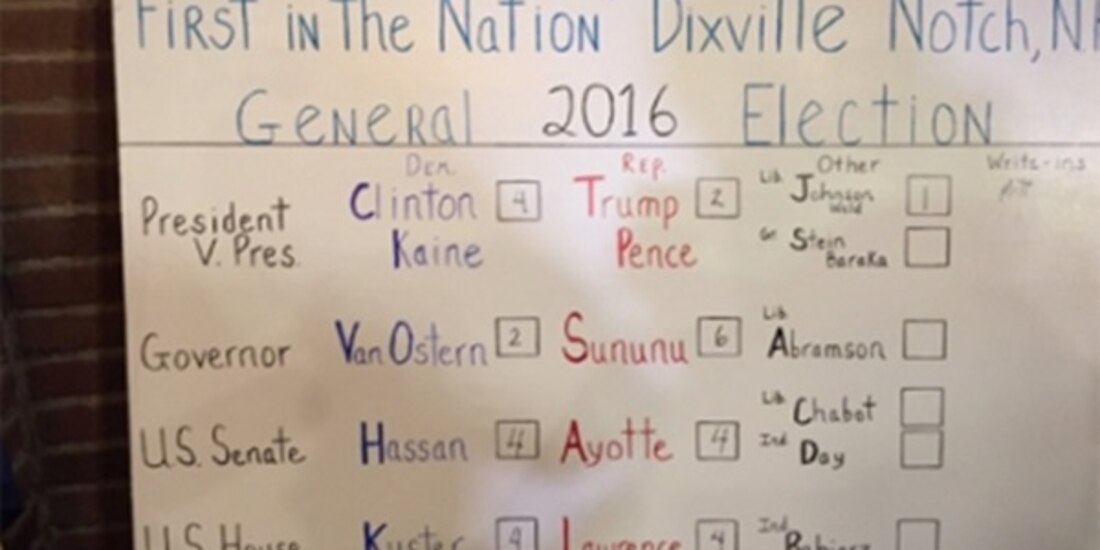 First in The Nation Dixville Notch, NH
General 2016 Election
Dem. Rep. Other Write-ins
President Clinton 4 Trump 2 Lib Johnson 1
Weld
V. Pres. Kaine Pence Gr Stein
Baraka
Governor Van Ostern 2 Sununu 6 Lib Abramson
Lib Chabot
U.S. Senate Hassan 4 Ayotte 4 Ind Day
U.S. House Kuster 4 Lawrence 4 Ind